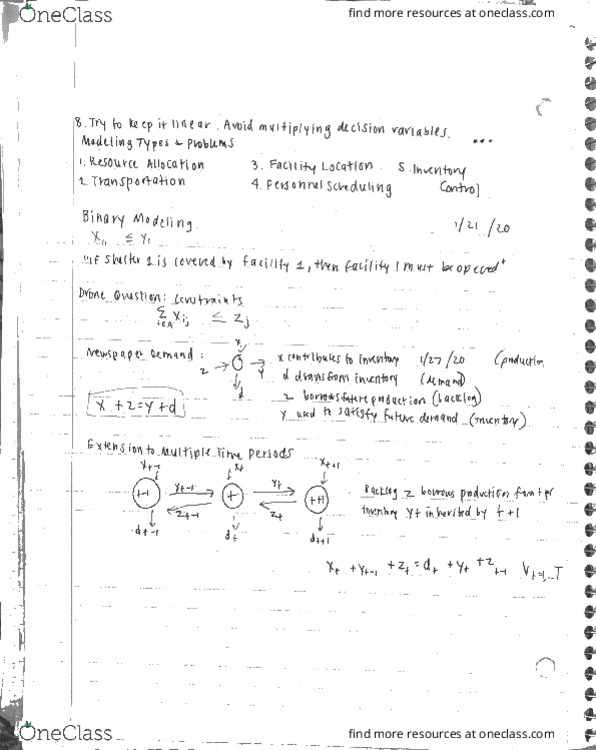 OneClass
find more resources at oneclass.com
8. Try to keep it linear. Avoid multiplying decision variables.
Modeling Types & Problems
1. Resource Allocation 3. Facility Location 5. Inventory
2. Transportation 4. Personnel Scheduling Control
Binary Modeling 1/21/20
X₁₁ ≤ Y₁
"If shelter 1 is covered by facility 1, then facility 1 must be opened"
Drone Question: Constraints
Σ i∈A Xij ≤ Zj
Newspaper Demand: x contributes to inventory 1/27/20 (production
d drans from inventory (demand)
z borrows future production (backlog)
y used to satisfy future demand (inventory)
x
z
y
d
x + z = y + d
Extension to Multiple Time Periods
Xt-1 Xt Xt+1
t-1 Yt-1 t Yt t+1
Zt-1 Zt
dt-1 dt dt+1
Backlog z borrows production from
inventory Yt inherited by t+1
Xt + Yt-1 + Zt = dt + Yt + Zt-1 ∀t=1,...T
OneClass
find more resources at oneclass.com